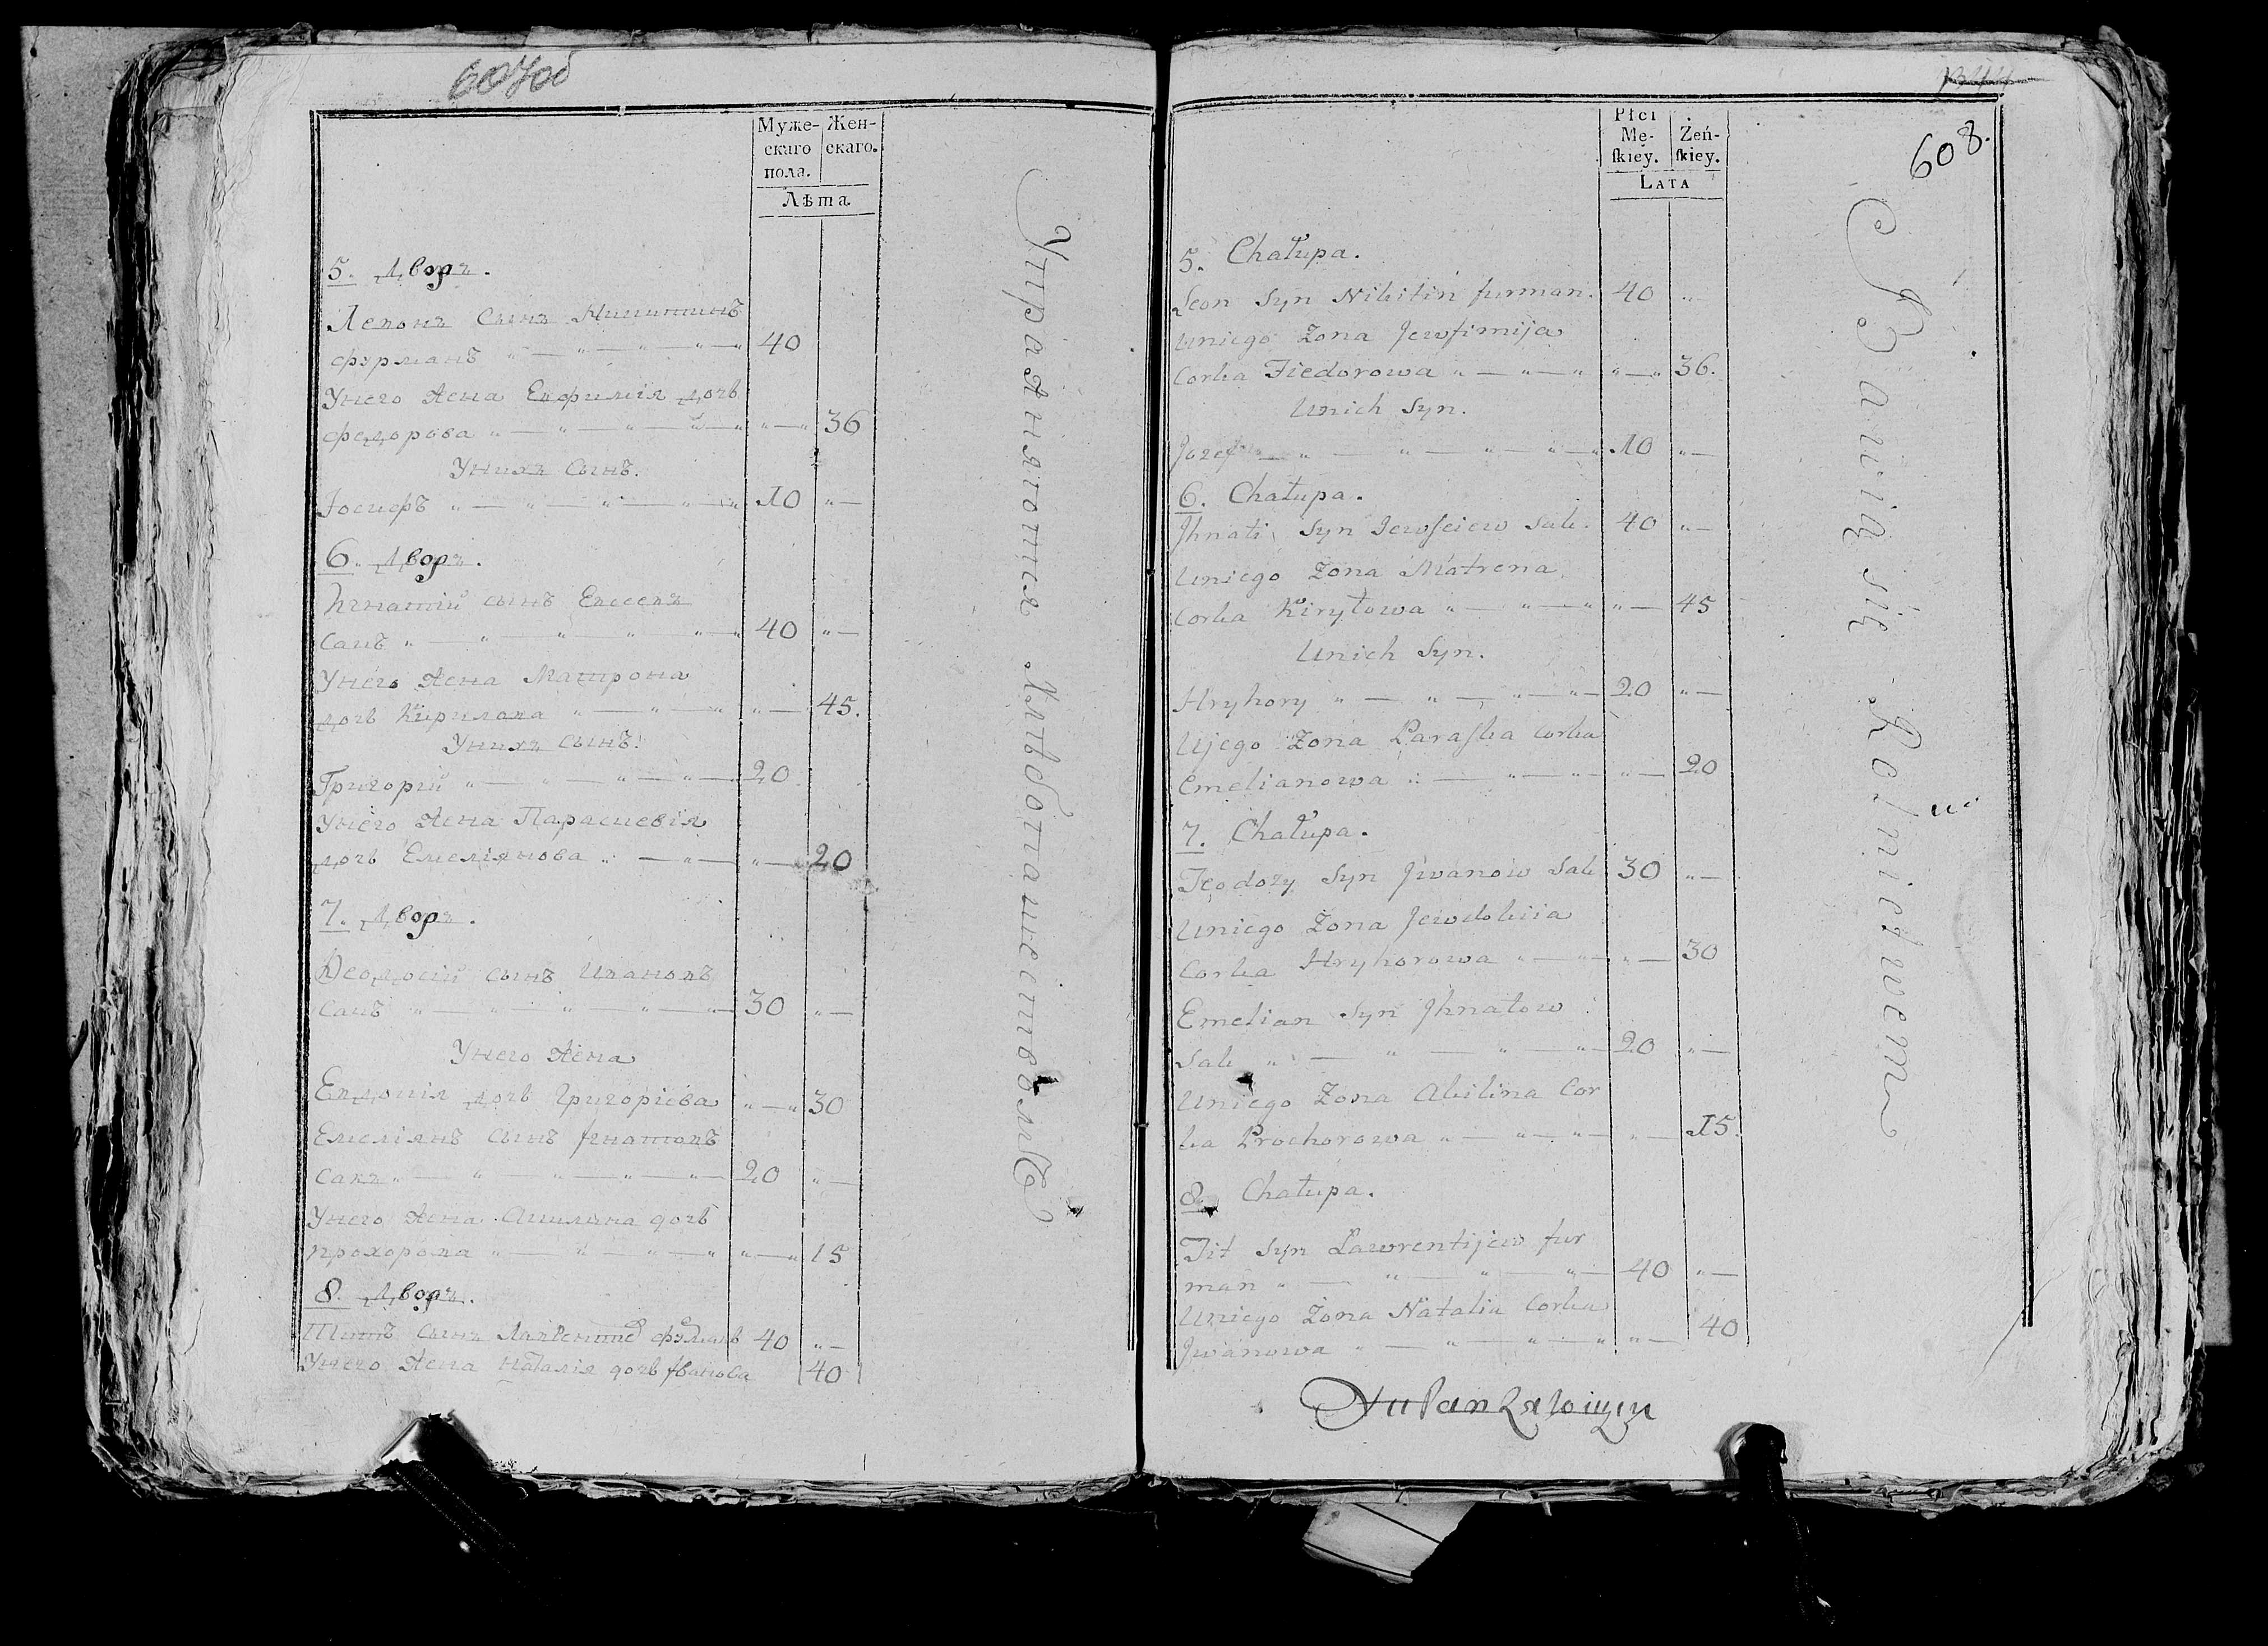 607об
Муже-
скаго
пола.
Жен-
скаго.
Лѣта
5. Дворъ.
Леонъ Сынъ Никитинъ
фурманъ " — " — " — " — " 40
Унего Жена Евфимія дочь
федорова " — " — " — " — " " — " 36
Унихъ Сынъ.
Іосифъ " — " — " — " — " 10 " —
6. Дворъ.
Игнатій сынъ Евсеевъ
Сакъ " — " " " " — " 40 " —
Унего Жена Матрона
дочь Кирилова " — " — " " — 45.
Унихъ сынъ.
Григорій " — " — " — " — 20
Унего Жена Параскевія
дочь Емеліянова " — " — " — 20
7. Дворъ.
Ѳеодосій сынъ Ивановъ
Сакъ " — " — " — " — " — 30 " —
Унего Жена
Евдокія дочь Григоріева " — " 30
Емеліянъ сынъ Игнатовъ
Сакъ " — " — " — " — " — 20 " —
Унего Жена Акилина дочь
прохорова " — " — " — " " — " 15
8. Дворъ.
Титъ Сынъ Лаврентіев фурманъ 40 " —
Унего Жена Наталія дочь Иванова 40
Упражняютея Хлѣбопашествомъ
608.
Płci
Mę-
skiey.
Żeń-
skiey.
LATA
5. Chałupa.
Leon Syn Nikitin furman. 40 " —
Uniego Zona Jewfimija
Corka Fiedorowa " — " — " " — " 36.
Unich Syn.
Jozef " — " — " — " — " — " 10 " —
6. Chałupa.
Jhnati Syn Jewsciew Sak. 40 " —
Uniego Zona Matrena
Corka Kiryłowa " — " — " " — 45
Unich Syn.
Hryhory " — " — " — " — 20 " —
Ujego Zona Paraska Corka
Emelianowa " — " — " " — 20
7. Chałupa.
Teodozy Syn Jwanow Sak 30 " —
Uniego Zona Jewdokiia
Corka Hryhorowa " — " — " — 30
Emelian Syn Jhnatow
Sak " — " — " — " — 20 " —
Uniego Zona Akilina Cor
ka Prochorowa " — " — " " — 15.
8. Chałupa.
Tit Syn Lawrentijew fur
man " — " — " — " — 40 " —
Uniego Zona Natalia Corka
Jwanowa " — " — " — " " — 40
Bawią się Rolnictwem